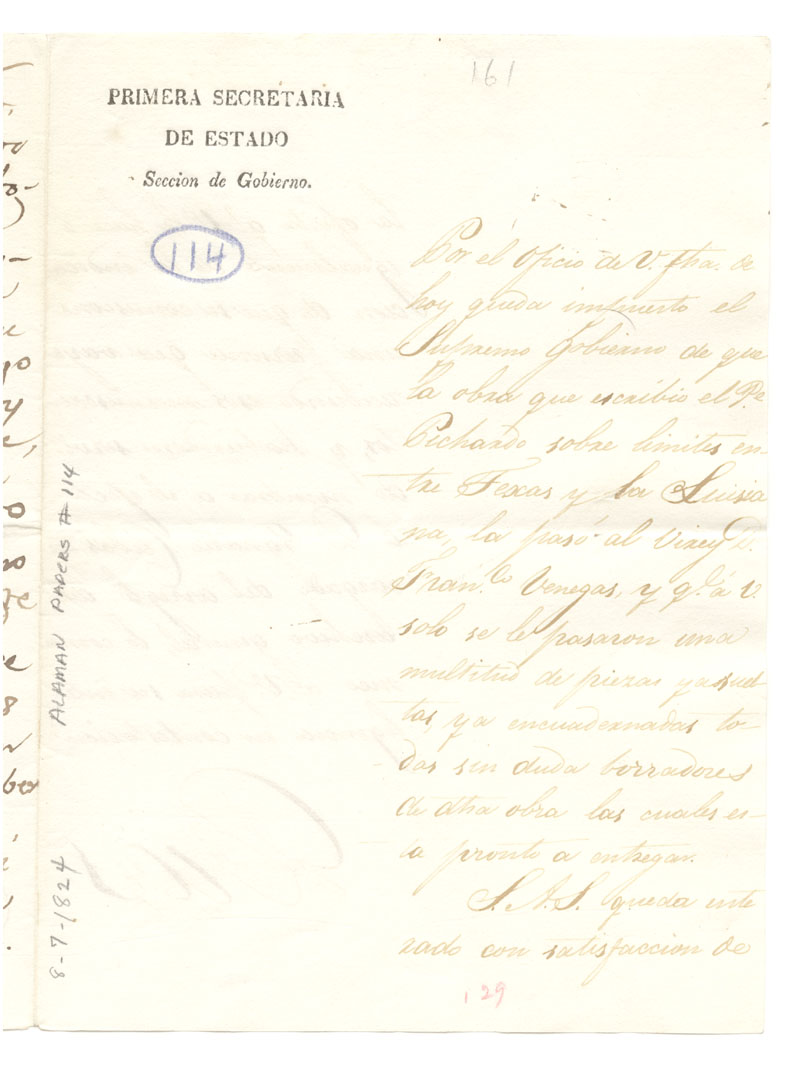 161
PRIMERA SECRETARIA
DE ESTADO
Seccion de Gobierno.
114
Por el oficio de V. fha. de
hoy queda impuesto el
Supremo Gobierno de que
la obra que escribio el Pe
Pichardo sobre limites en-
tre Texas y la Luisia
na, la pasó al Virey D.
Fran.co Venegas, y q.e á V.
solo se le pasaron una
multitud de piezas ya suel
tas, ya encuadernadas to-
das sin duda borradores
de dha obra las cuales es-
ta pronto a entregar.
S.A.S. queda ente
rado con satisfaccion de
29
ALAMAN PAPERS # 114
8-7-1824